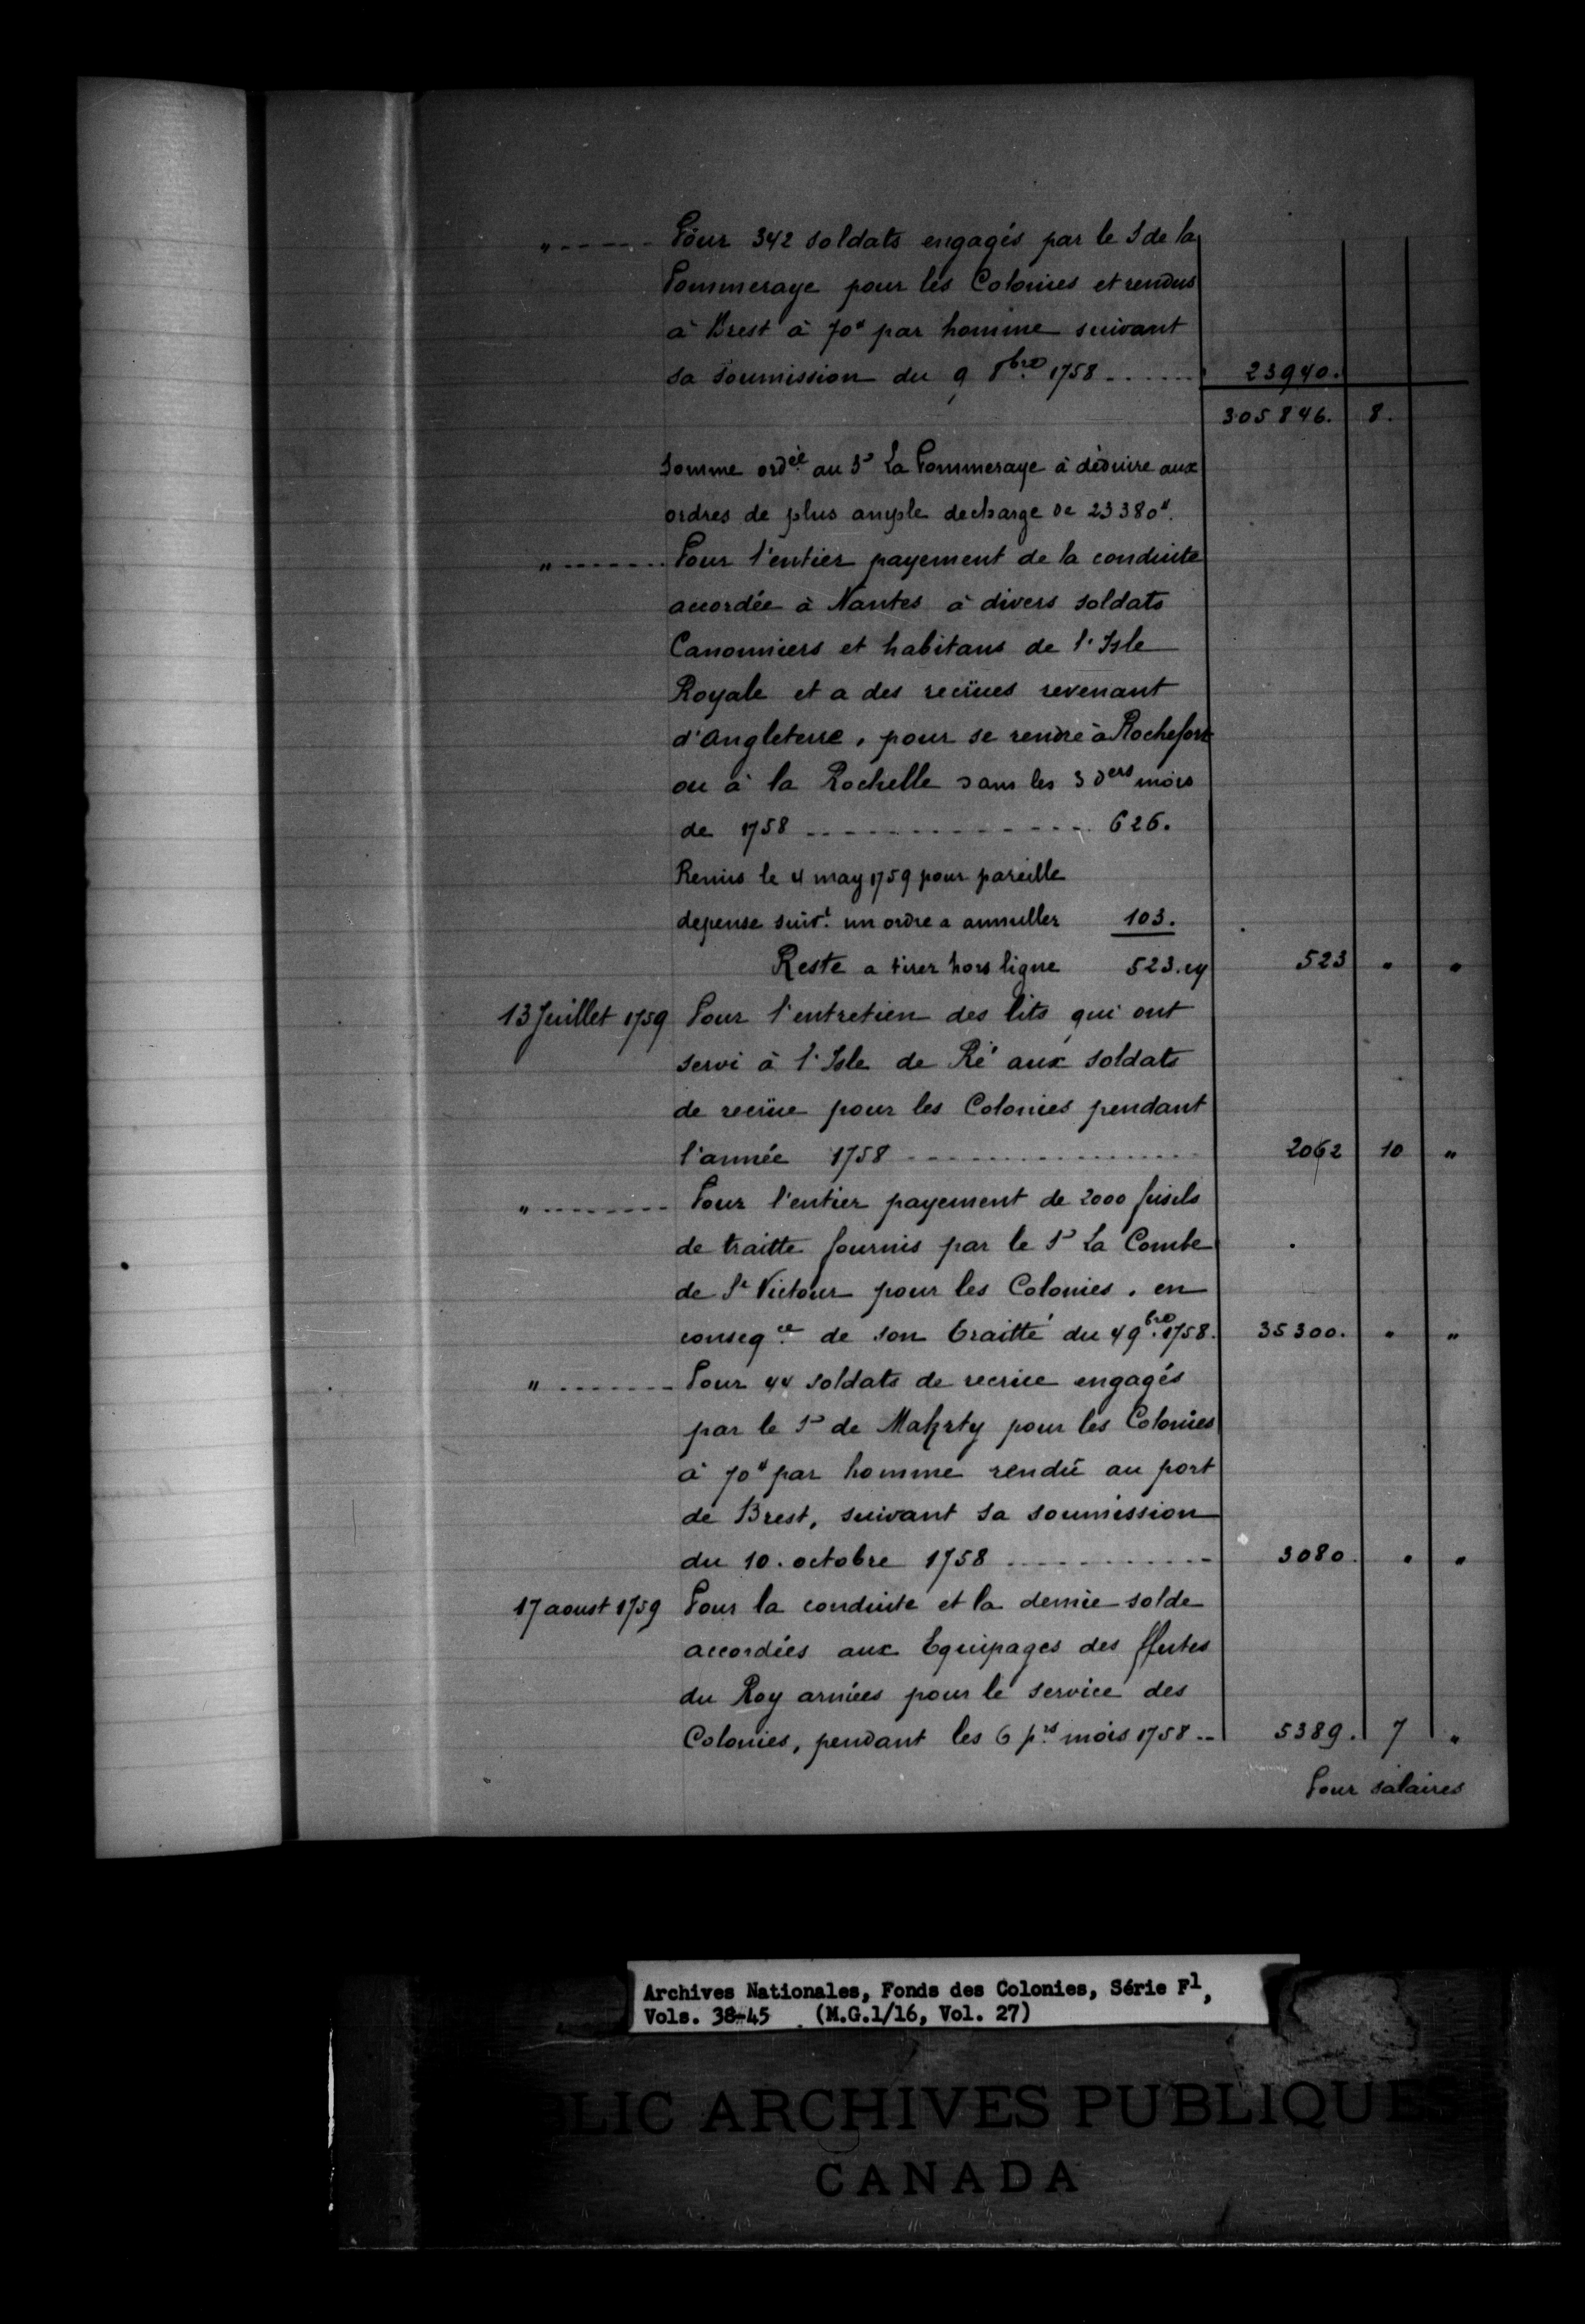 " ------- Pour 342 soldats engagés par le S de la
Pommeraye pour les Colonies et rendus
à Brest à 70# par homme suivant
sa soumission du 9 8bre 1758 ------- 23940.
305846. 8.
Somme ordée au Sr La Pommeraye à déduire aux
ordres de plus ample decharge de 23380#.
" ------- Pour l'entier payement de la conduite
accordée à Nantes à divers soldats
Canonniers et habitans de l'Isle
Royale et a des recrües revenant
d'Angleterre, pour se rendre à Rochefort
ou à la Rochelle dans les 3 ders mois
de 1758 ------- 626.
Remis le 4 may 1759 pour pareille
depense suivt. un ordre a annuller 103.
Reste a tirer hors ligne 523. cy 523 " "
13 Juillet 1759 Pour l'entretien des lits qui ont
servi à l'Isle de Ré aux soldats
de recrüe pour les Colonies pendant
l'année 1758 ------- 2062 10 "
" ------- Pour l'entier payement de 2000 fusils
de traitte fournis par le Sr La Combe
de St Victour pour les Colonies, en
conseqce de son traitté du 4 9bre. 1758. 35300. " "
" ------- Pour 44 soldats de recrüe engagés
par le Sr de Makrty pour les Colonies
à 70# par homme rendü au port
de Brest, suivant sa soumission
du 10. octobre 1758 ------- 3080. " "
17 aoust 1759 Pour la conduite et la demie solde
accordées aux Equipages des fflutes
du Roy armées pour le service des
Colonies, pendant les 6 prs mois 1758 -- 5389. 7 "
Pour salaires
Archives Nationales, Fonds des Colonies, Série F1,
Vols. 38-45 (M.G.1/16, Vol. 27)
BLIC ARCHIVES PUBLIQUES
CANADA